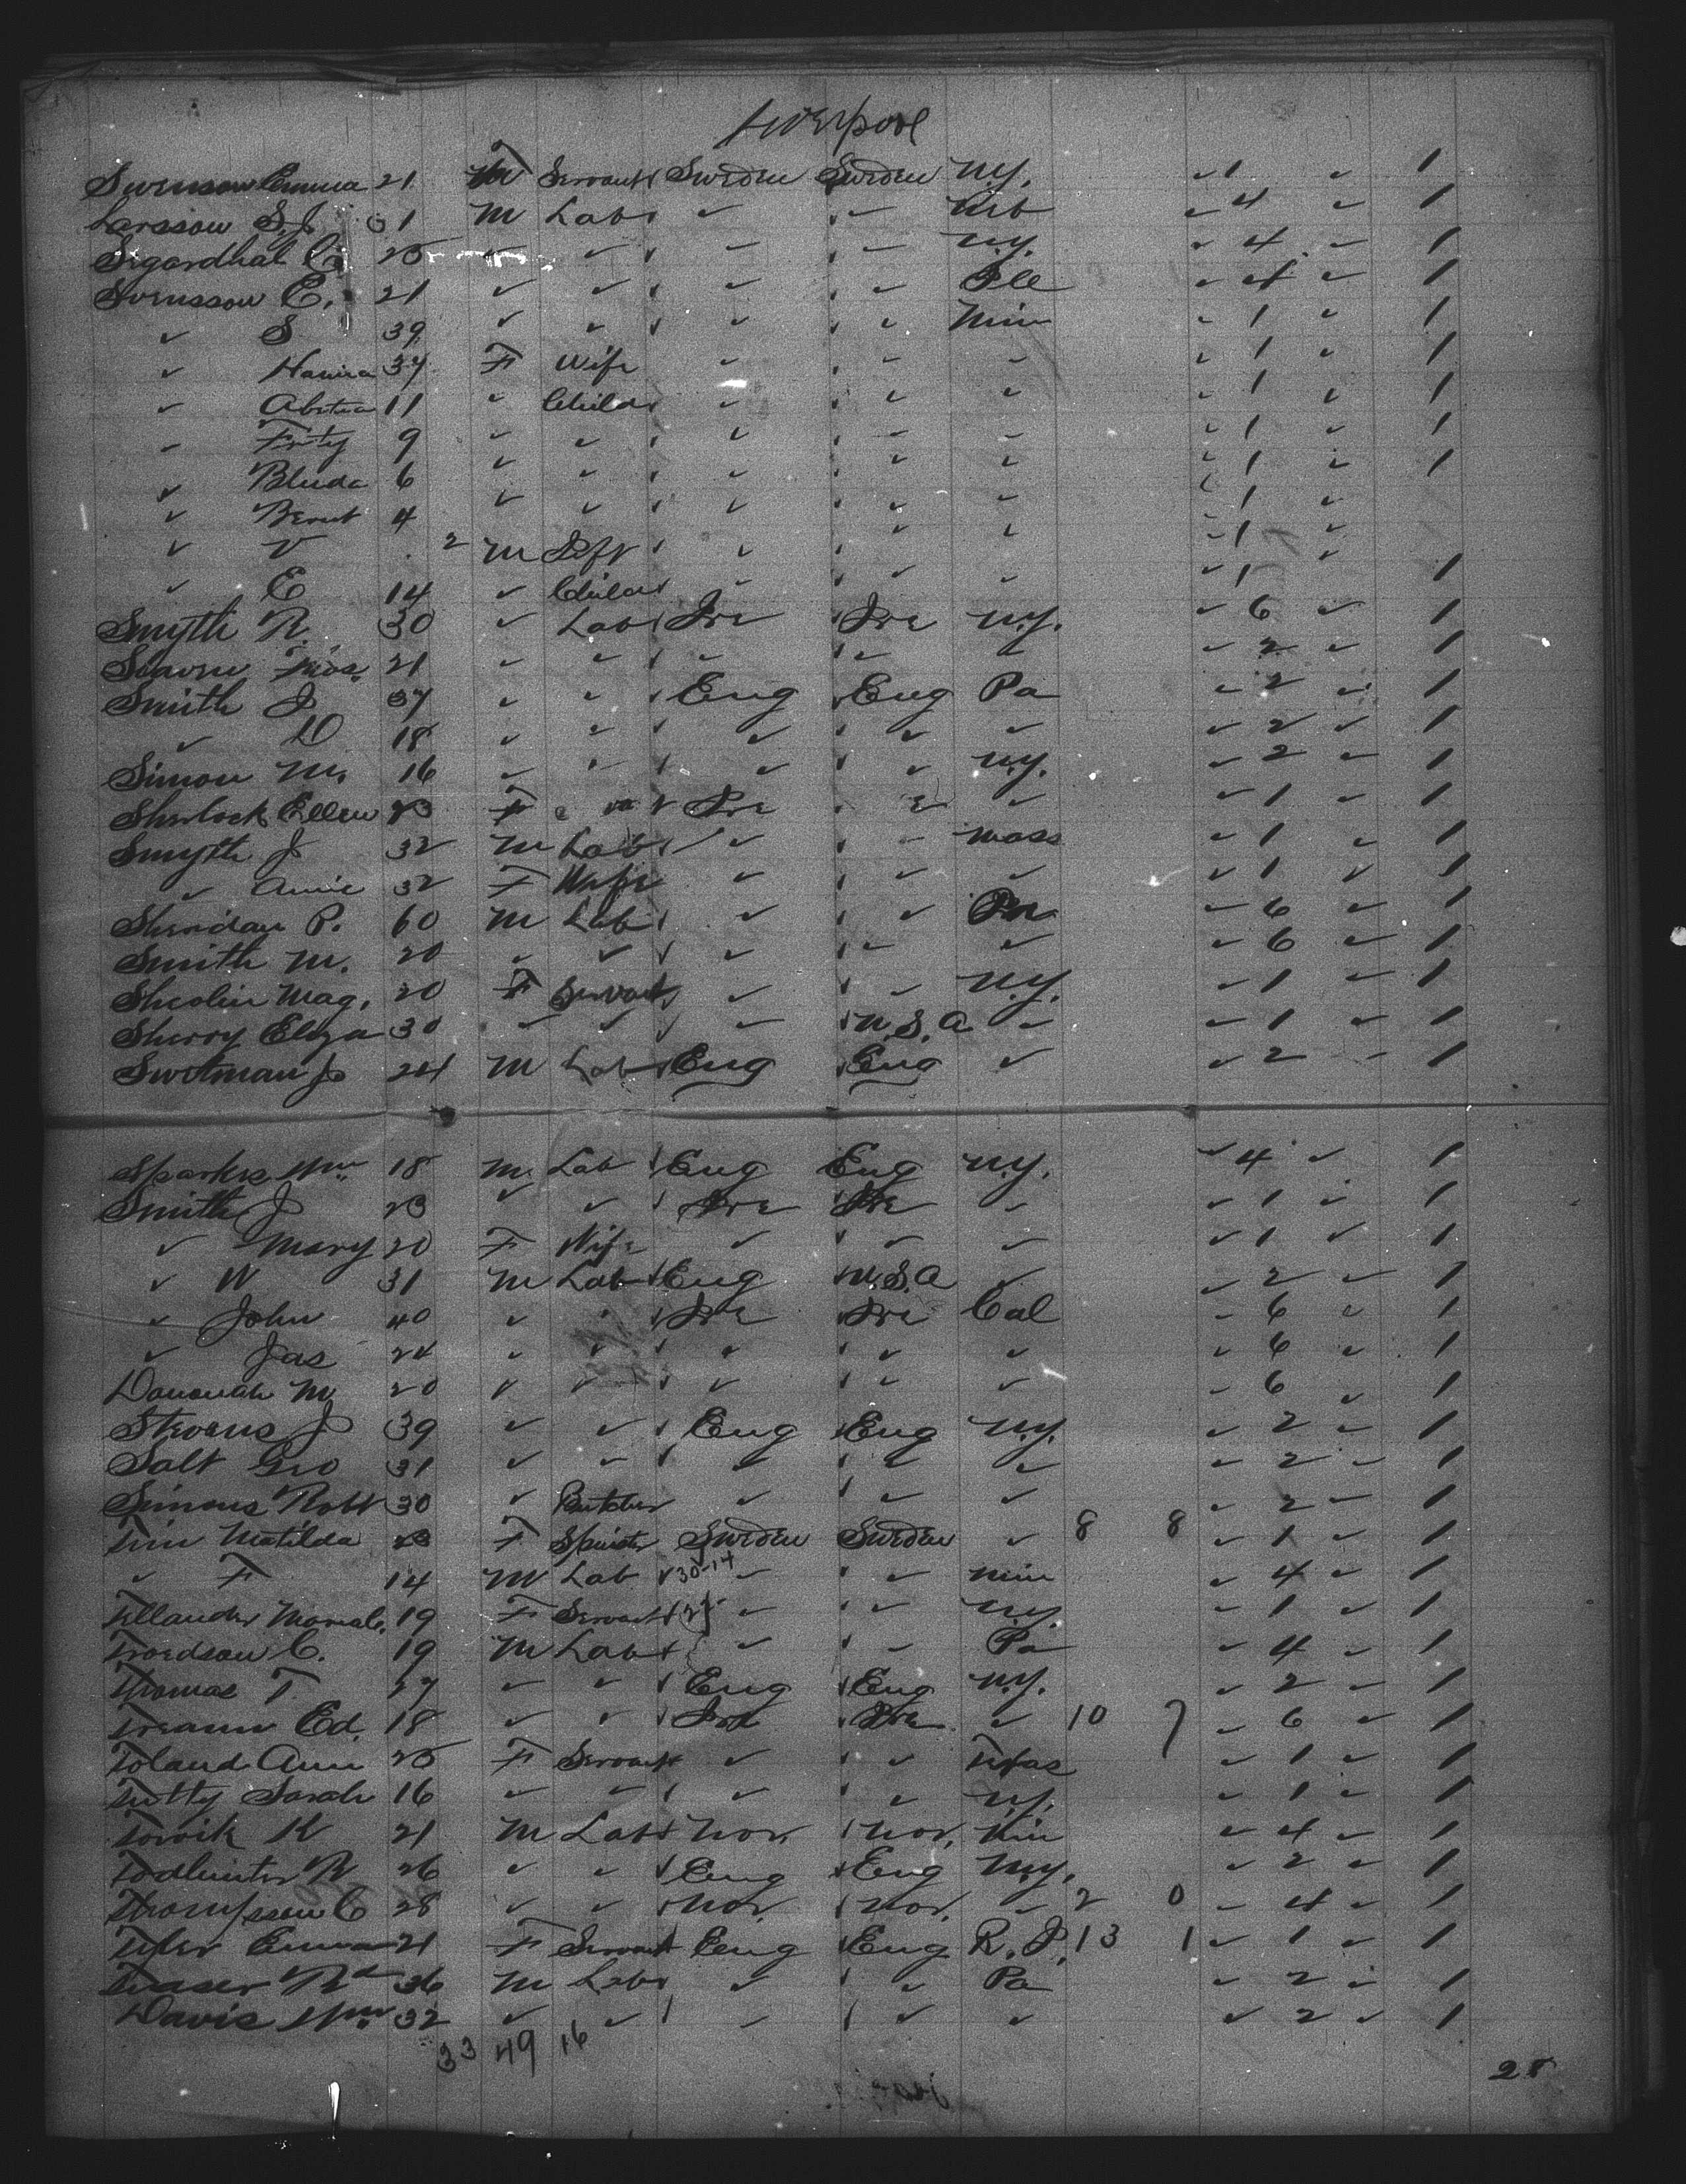 Liverpool
Swenson Emma 21 F Servant Sweden Sweden N.Y. ✓ 1 ✓ 1
Larsson S. J. 31 M Lab ✓ ✓ Neb ✓ 4 ✓ 1
25 ✓ ✓ ✓ ✓ N.Y. ✓ 4 ✓ 1
Svensson E. 21 ✓ ✓ ✓ ✓ Ill ✓ 4 ✓ 1
✓ S 39 ✓ ✓ ✓ ✓ Min ✓ 1 ✓ 1
✓ Hanna 37 F Wife ✓ ✓ ✓ ✓ 1 ✓ 1
✓ 11 ✓ Child ✓ ✓ ✓ ✓ 1 ✓ 1
✓ 9 ✓ ✓ ✓ ✓ ✓ ✓ 1 ✓ 1
✓ 6 ✓ ✓ ✓ ✓ ✓ ✓ 1 ✓ 1
✓ 4 ✓ ✓ ✓ ✓ ✓ 1 ✓
✓ V 2 M Inft ✓ ✓ ✓ ✓ 1 ✓
✓ E 14 ✓ Child ✓ ✓ ✓ ✓ 1 ✓ 1
Smyth R. 30 ✓ Lab Ire Ire N.Y. ✓ 6 ✓ 1
Thos. 21 ✓ ✓ ✓ ✓ ✓ ✓ 2 ✓ 1
Smith J 37 ✓ ✓ Eng Eng Pa ✓ 2 ✓ 1
✓ D 18 ✓ ✓ ✓ ✓ ✓ ✓ 2 ✓ 1
Simon M. 16 ✓ ✓ ✓ ✓ N.Y. ✓ 2 ✓ 1
Sherlock Ellen 23 F Ire ✓ ✓ 1 ✓ 1
Smyth J 32 M Lab ✓ ✓ Mass ✓ 1 ✓ 1
✓ Annie 32 F Wife ✓ ✓ ✓ ✓ 1 ✓ 1
Sheridan P. 60 M Lab ✓ ✓ Pa ✓ 6 ✓ 1
Smith M. 20 ✓ ✓ ✓ ✓ ✓ ✓ 6 ✓ 1
Mag. 20 F Servant ✓ ✓ N.Y. ✓ 1 ✓ 1
Sherry Eliza 30 ✓ ✓ ✓ U.S.A ✓ ✓ 1 ✓ 1
Swetman J 24 M Lab Eng Eng ✓ ✓ 2 ✓ 1
Sparks Wm. 18 M Lab Eng Eng N.Y. ✓ 4 ✓ 1
Smith J 23 ✓ ✓ Ire Ire ✓ ✓ 1 ✓ 1
✓ Mary 20 F Wife ✓ ✓ ✓ ✓ 1 ✓ 1
✓ W 31 M Lab Eng U.S.A ✓ ✓ 2 ✓ 1
✓ John 40 ✓ ✓ Ire Ire Cal ✓ 6 ✓ 1
✓ Jas 24 ✓ ✓ ✓ ✓ ✓ ✓ 6 ✓ 1
M 20 ✓ ✓ ✓ ✓ ✓ ✓ 6 ✓ 1
Stevens J 39 ✓ ✓ Eng Eng N.Y. ✓ 2 ✓ 1
Salt Geo 31 ✓ ✓ ✓ ✓ ✓ ✓ 2 ✓ 1
Simons Robt 30 ✓ Butcher ✓ ✓ ✓ ✓ 2 ✓ 1
Matilda 23 F Spinster Sweden Sweden ✓ 8 8 ✓ 1 ✓ 1
✓ F 14 M Lab 30-14 ✓ ✓ Min ✓ 4 ✓ 1
19 F Servant ✓ ✓ N.Y ✓ 1 ✓ 1
Troedson C. 19 M Lab ✓ ✓ Pa ✓ 4 ✓ 1
Thomas T. 27 ✓ ✓ Eng Eng N.Y. ✓ 2 ✓ 1
Ed. 18 ✓ ✓ Ire Ire ✓ 10 7 ✓ 6 ✓ 1
Toland Ann 25 F Servant ✓ ✓ Texas ✓ 1 ✓ 1
Tutty Sarah 16 ✓ ✓ ✓ ✓ N.Y. ✓ 1 ✓ 1
Torvik K 21 M Lab Nor. Nor. Min ✓ 4 ✓ 1
Todhunter R 26 ✓ ✓ Eng Eng N.Y. ✓ 2 ✓ 1
Thompson C 28 ✓ ✓ Nor. Nor. ✓ 2 0 ✓ 4 ✓ 1
Tyler Emma 21 F Servant Eng Eng R.I. 13 1 ✓ 1 ✓ 1
36 M Lab ✓ ✓ Pa ✓ 2 ✓ 1
Davis Wm. 32 ✓ ✓ ✓ ✓ ✓ ✓ 2 ✓ 1
33 49 16
28